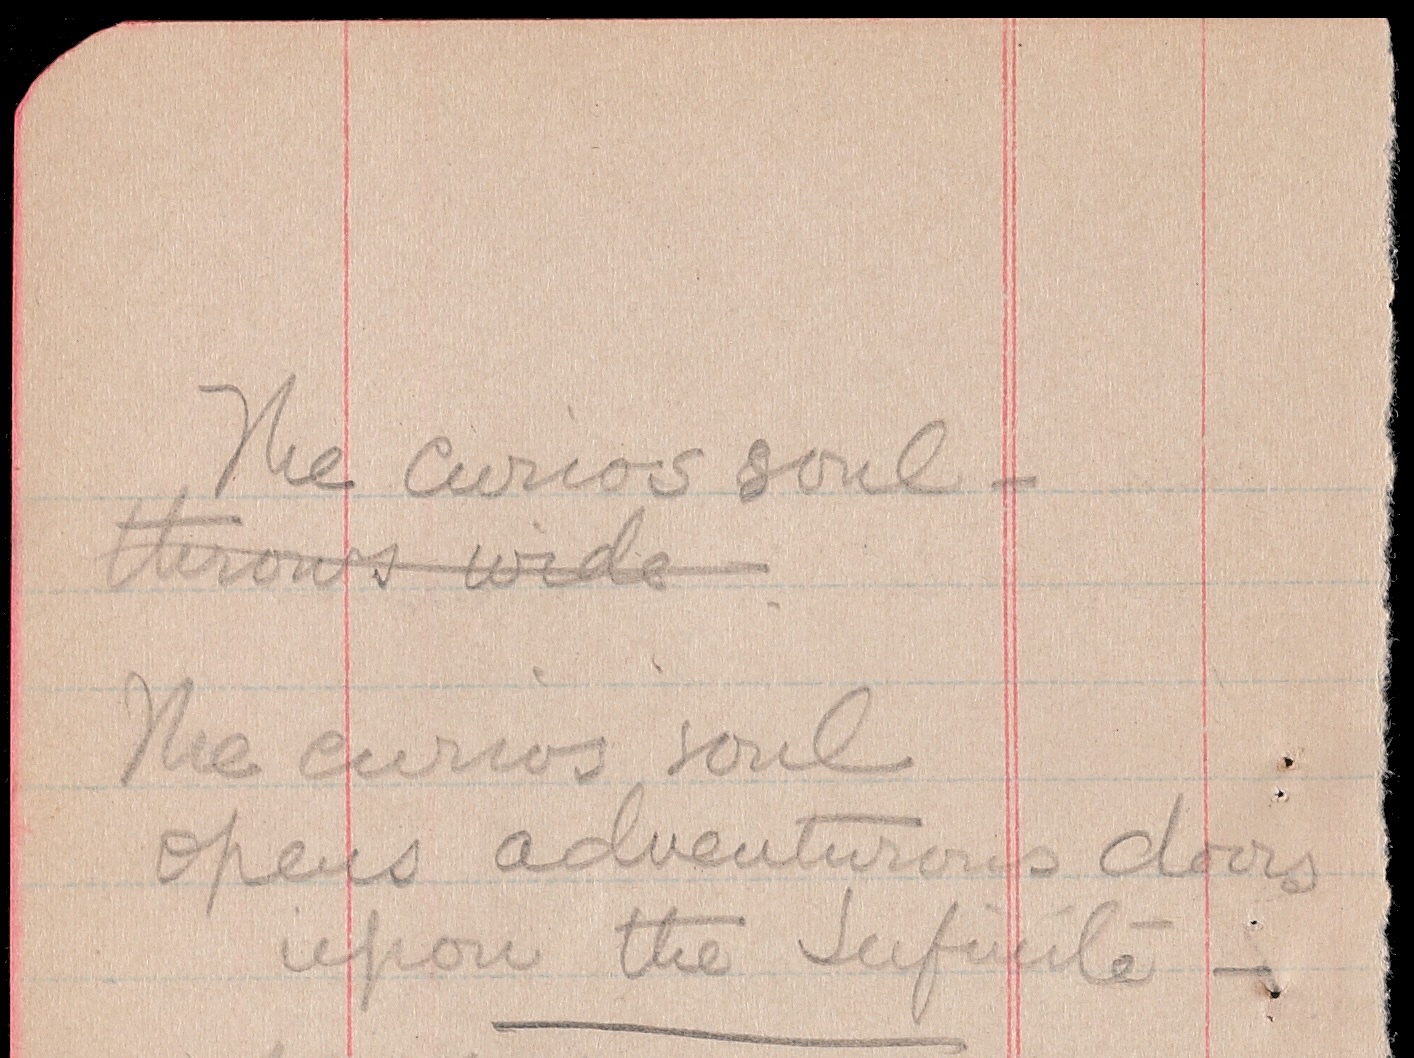 The curios soul -
throws wide
The curios soul
opens adventurous doors
upon the Infinite -